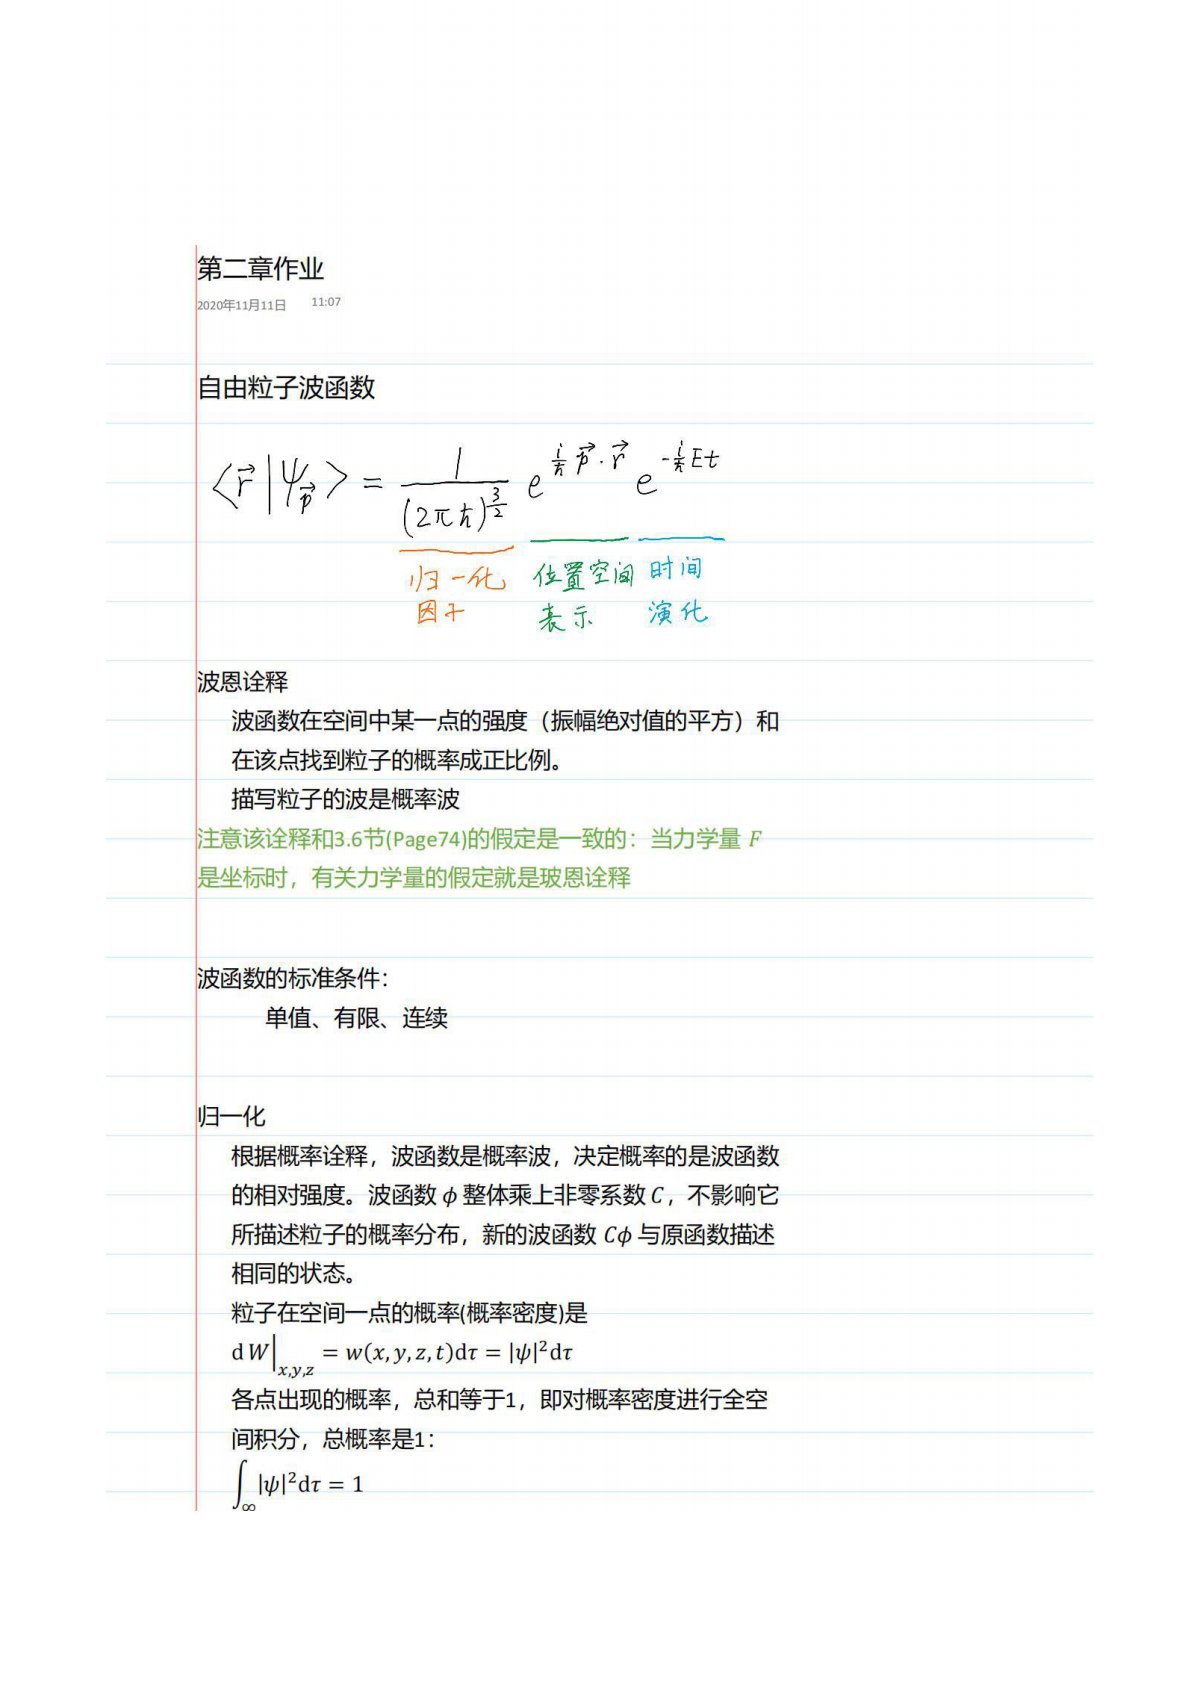 第二章作业
2020年11月11日 11:07
自由粒子波函数
⟨r⃗|ψ_p⃗⟩ = 1/(2πħ)^{3/2} e^{i/ħ p⃗·r⃗} e^{-i/ħ Et}
归一化 位置空间 时间
因子 表示 演化
波恩诠释
波函数在空间中某一点的强度（振幅绝对值的平方）和
在该点找到粒子的概率成正比例。
描写粒子的波是概率波
注意该诠释和3.6节(Page74)的假定是一致的：当力学量 F
是坐标时，有关力学量的假定就是玻恩诠释
波函数的标准条件：
单值、有限、连续
归一化
根据概率诠释，波函数是概率波，决定概率的是波函数
的相对强度。波函数 ϕ 整体乘上非零系数 C，不影响它
所描述粒子的概率分布，新的波函数 Cϕ 与原函数描述
相同的状态。
粒子在空间一点的概率(概率密度)是
d W|_{x,y,z} = w(x, y, z, t)dτ = |ψ|²dτ
各点出现的概率，总和等于1，即对概率密度进行全空
间积分，总概率是1：
∫_∞ |ψ|²dτ = 1